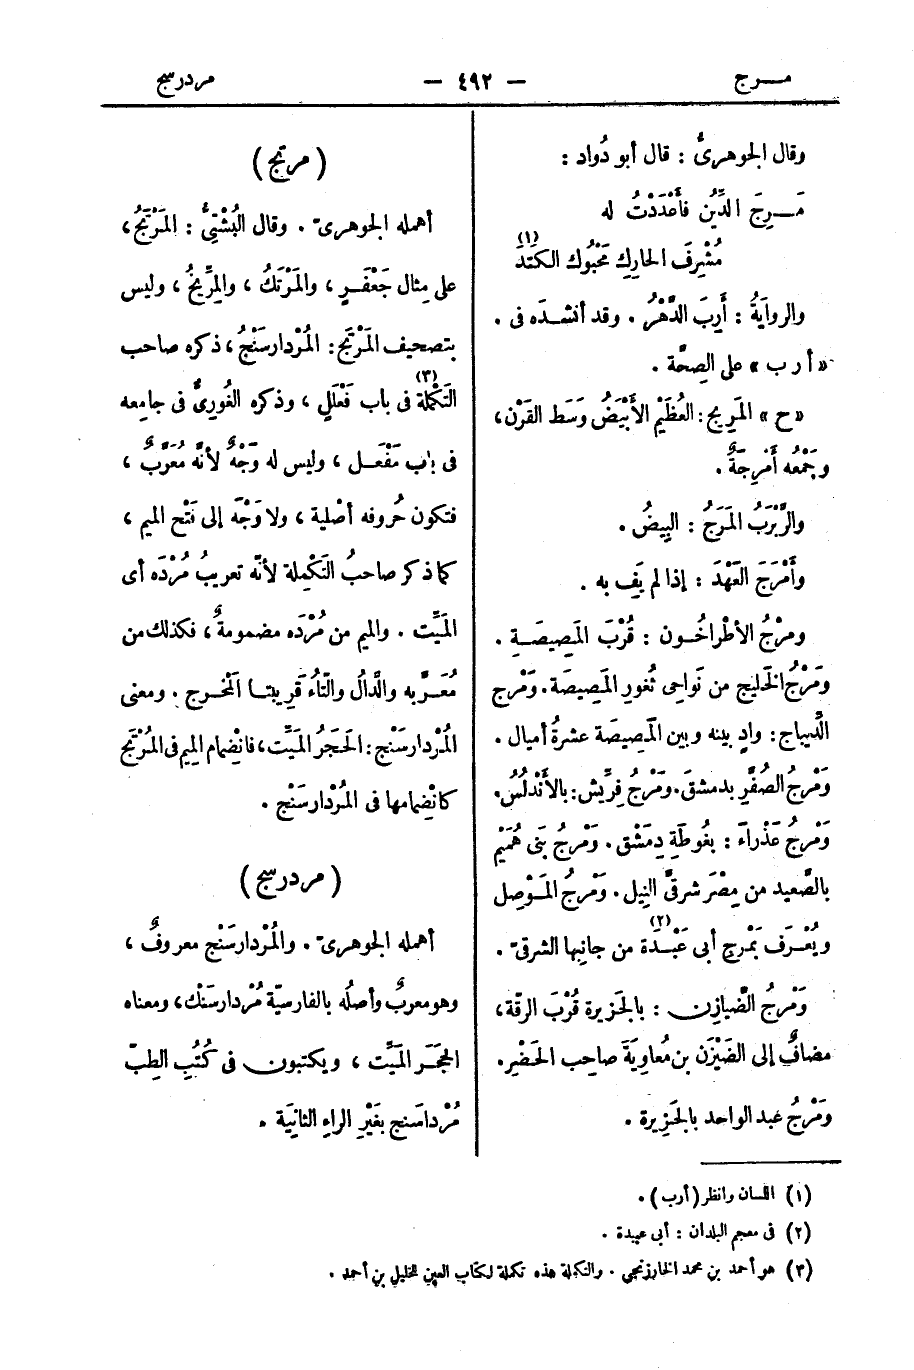 مـــرج — ٤٩٢ — مردرسج
وقال الجوهرىُّ : قال أبو دُواد :
مَـــرِجَ الدِّينُ فأَعْدَدْتُ له
مُشْرِفَ الحارِكِ مَحْبُوك الكَتَدَ (١)
والروايَةُ : أَرِبَ الدَّهْرُ . وقد أنشـــدَه فى .
« أ ر ب » على الصِحَّة .
« ح » المَرِيج : العُظَيْم الأَبْيَضُ وسَط القَرْن ،
وجَمْعُه أَمْرِجَةٌ .
والرَّبْرَبُ المَرَجُ : البِيضُ .
وأَمْرَجَ العَهْدَ : إذا لم يَفِ به .
ومرْجُ الأطْراخُــون : قُرْبَ المَصِيصَــة .
ومَرْجُ الخَليج من نَواحِى ثُغورِ المَصِيصَة . ومَرْج
الدِّيباج : وادٍ بينه وبين المَصِيصَة عشرةُ أميال .
ومَرْجُ الصُفَّرِ بدمشقَ . ومَرْجُ فِرِّيش : بالأَنْدلُس .
ومَرْجُ عَذْراءَ : بغُوطَةِ دِمَشْق . ومَرْجُ بَنى هُمَيْم
بالصَّعيد من مِصْرَ شرقىَّ النِيل . ومَرْجُ المَــوْصِل
ويُعْــرَف بمَرجِ أبى عَبْــدَة (٢) من جانِبها الشرقىّ .
ومَرْجُ الضَّيازِن : بالجَزيرة قُرْبَ الرقّة ،
مضافٌ إلى الضَيْزَن بن مُعاوِيَةَ صاحِب الحَضْرِ .
ومَرْجُ عبد الواحد بالجَزِيرة .
( مرتج )
أهمله الجوهرىّ . وقال البُشْتِىُّ : المَرْتَجُ ،
على مِثال جَعْفَــرٍ ، والمَرْتَكُ ، والمِرِّيخُ ، وليس
بتصحيف المَرْتَج : المُرْدارسَنْجُ ، ذكره صاحب
التَكْملة (٣) فى باب فَعْلَلٍ ، وذكره الغُورِىُّ فى جامِعه
فى باب مَفْعَــل ، وليس له وَجْهٌ لأنَّه مُعَرَّبٌ ،
فتكون حُروفه أصْلية ، ولا وَجْهَ إلى فَتْح الميم ،
كما ذكر صاحبُ التَكْملة لأنّه تعريبُ مُرْدَه أى
المَيِّت . والميم من مُرْدَه مضمومةٌ ، فكذلك من
مُعَــرَّبه والدَّالُ والتّاءُ قَريبتـا المَخْــرج . ومعنى
المُرْدارسَنْج : الحَجَرُ المَيِّت ، فانْضِمام الميم فى المُرْتَج
كانْضِمامها فى المُرْدارسَنْج .
( مردرسج )
أهمله الجوهرىّ . والمُرْدارسَنْج معروفٌ ،
وهو معربٌ وأصلُه بالفارسيّة مُرْدارسَنْك ، ومعناه
الحَجَــر المَيِّت ، ويكتبون فى كُتُبِ الطِبّ
مُرْداسَنج بغَيْرِ الراءِ الثانِيَة .
(١) اللسان وانظر (أرب) .
(٢) فى معجم البلدان : أبى عبيدة .
(٣) هو أحمد بن محمد الخارزنجى . والتكملة هذه تكملة لكتاب العين للخليل بن أحمد .